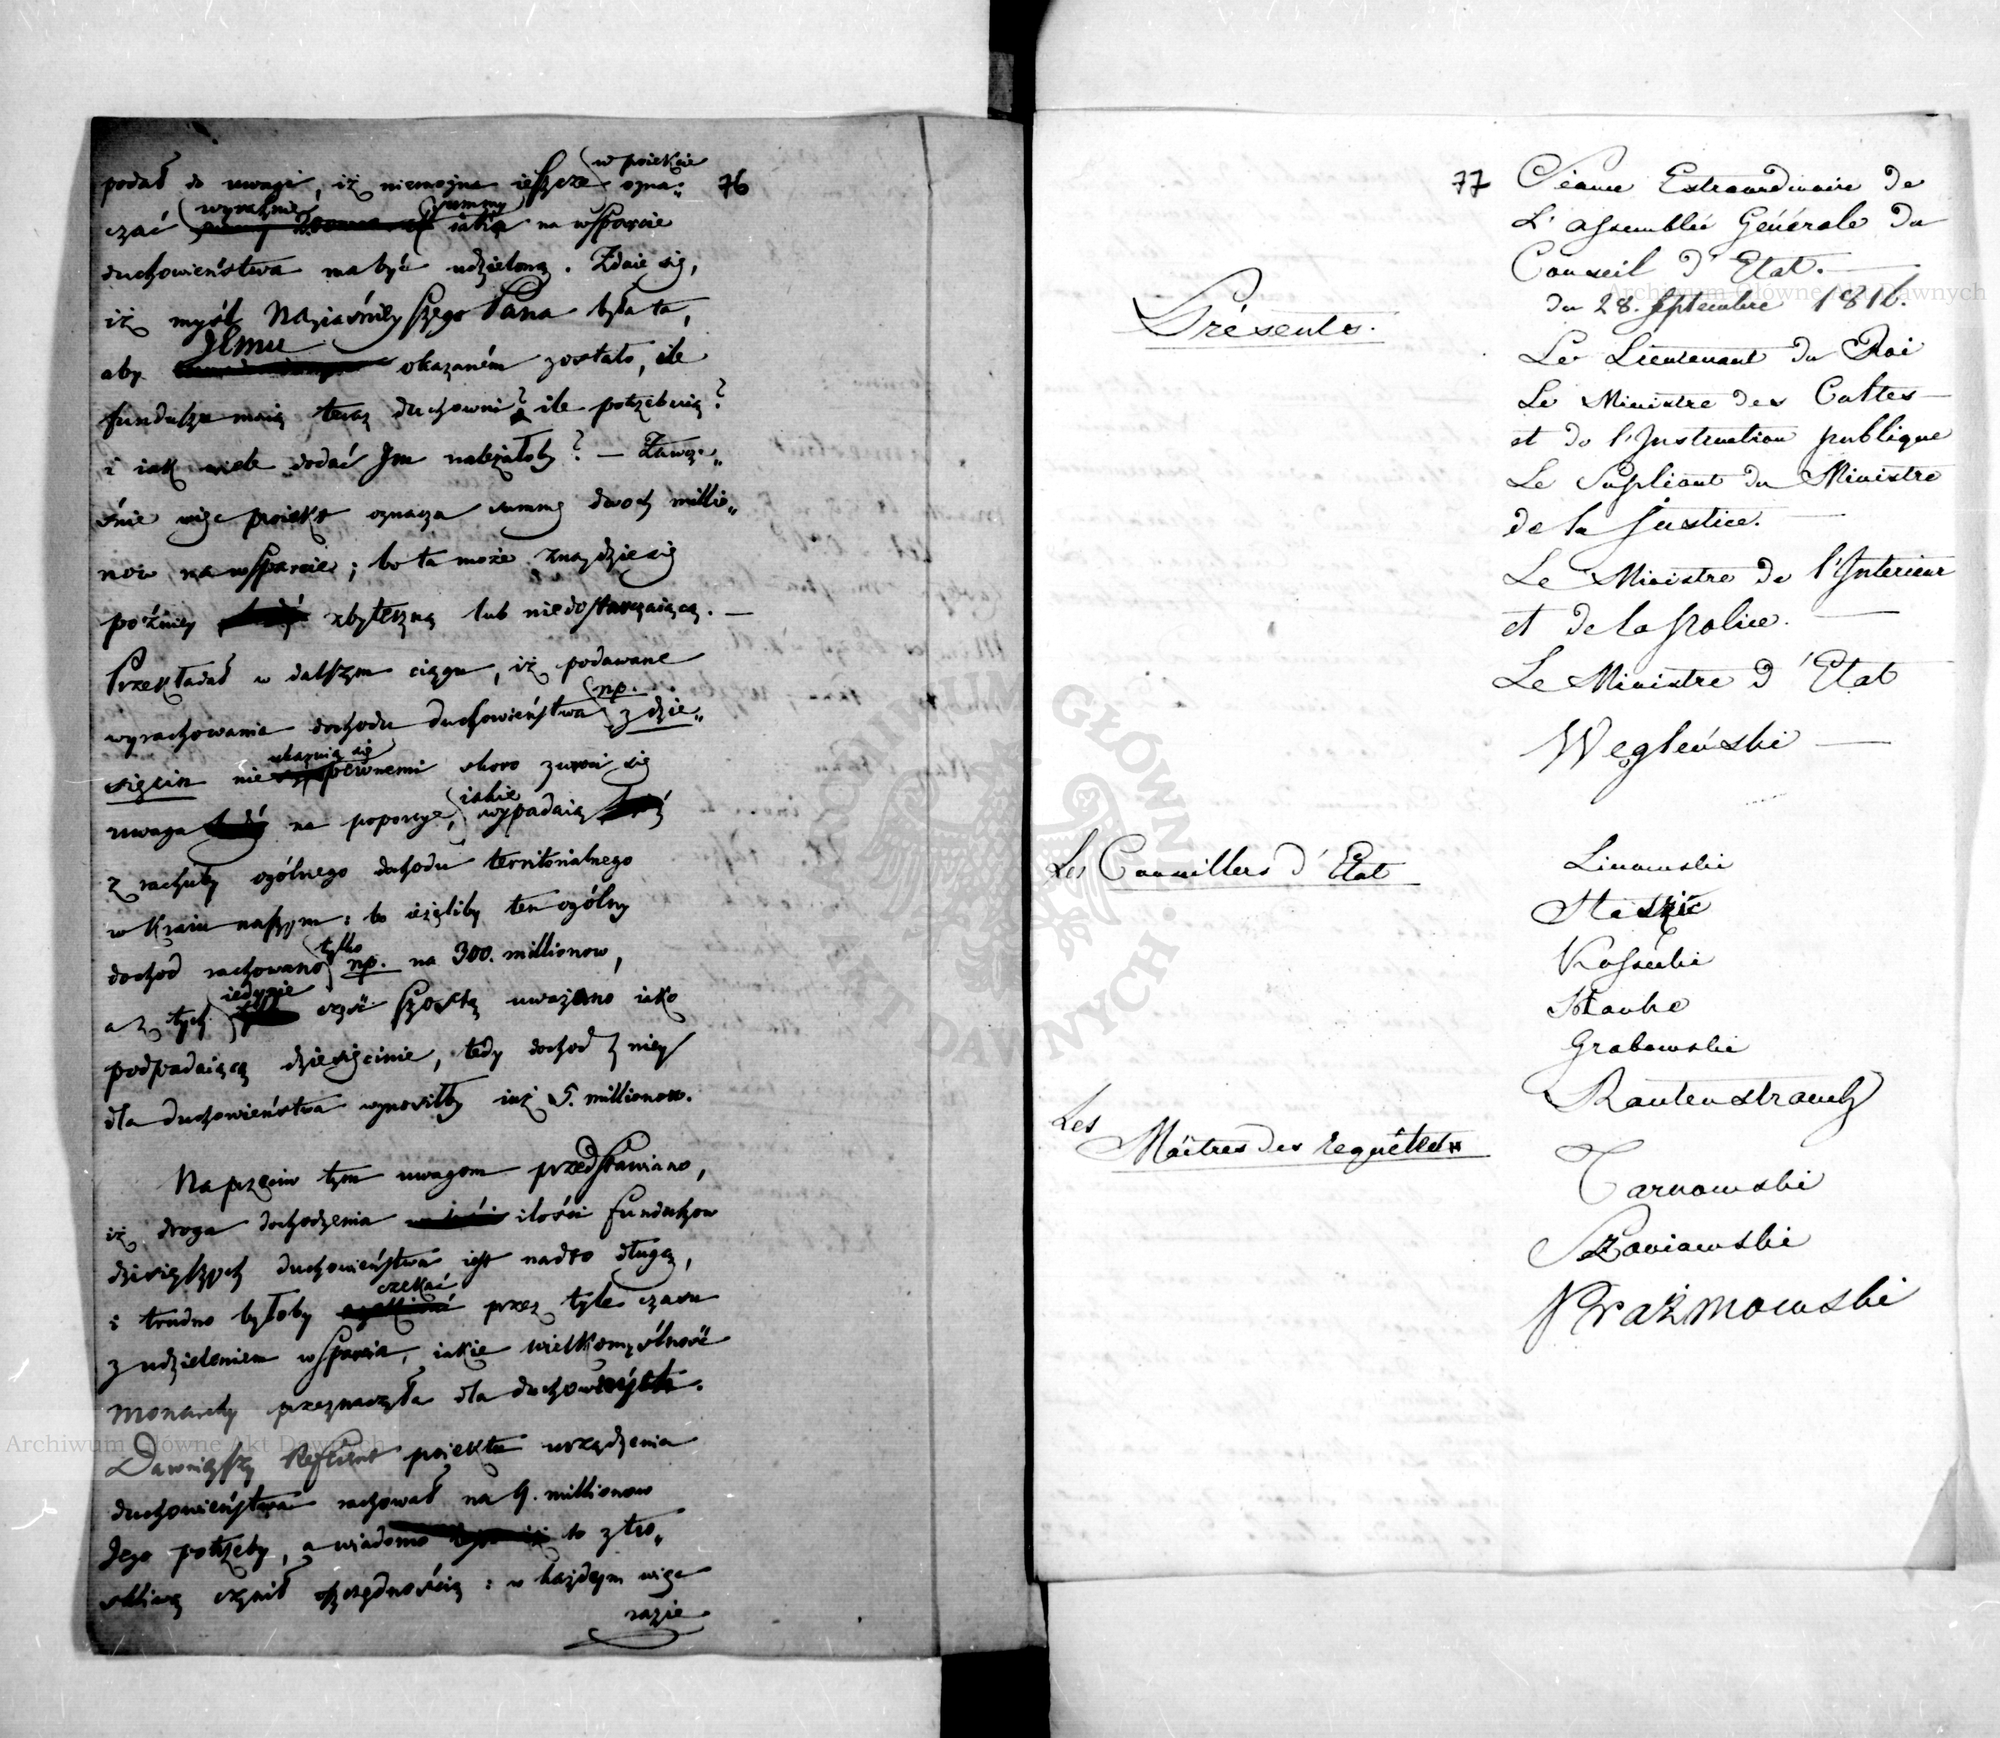 76
podał do uwagi, iż niemożna ieszcze w proiekcie ozna„
czać wyraźnie summy iaka na wsparcie
duchowieństwa ma być udzieloną. Zdaie się,
iż myśl Nayiaśnieyszego Pana była ta,
aby Jemu okazaném zostało, ile
funduszu maią teraz duchowni? ile potrzebuią?
i iak wiele dodać Jm należałoby? — Zawcze„
śnie więc proiekt oznacza summę dwóch millio„
nów na wsparcie; bo ta może znaydzie się
poźniey zbyteczną lub niedostarczaiącą. —
Przekładał w dalszym ciągu, iż podawane
wyrachowania dochodu duchowieństwa np. z dzie„
sięcin nie ukazuią się pewnemi skoro zwróci się
uwaga na poporcye, iakie wypadaią
z rachuby ogólnego dochodu territorialnego
w Kraiu naszym: bo ieżeliby ten ogólny
dochod rachowano tylko np. na 300. millionow,
a z tych iedynie część szostą uważano iako
podpadaiącą dziesięcinie, tedy dochod z niey
dla duchowieństwa wynosiłby iuż 5. millionow.
Naprzeciw tym uwagom przedstawiano,
iż droga dochodzenia ilości funduszow
dzisieyszych duchowieństwa iest nadto długą,
i trudno byłoby czekać przez tyle czasu
z udzieleniem wsparcia, iakie wielkomyślność
monarchy przeznaczyła dla duchownych.
Dawnieyszy Referent proiektu urządzenia
duchowieństwa rachował na 9. millionow
Jego potrzeby, a wiadomo to z tro„
skliwą czynił oszczędnością: w każdym więc
razie
77
Séance Extraordinaire de
L'assemblée Générale du
Conseil d'Etat.
du 28. Septembre 1816.
Présents.
Le Lieutenant du Roi
Le Ministre des Cultes
et de l'Instruction publique
Le Supléant du Ministre
de la Justice.
Le Ministre de l'Interieur
et de la Police.
Le Ministre d'Etat
Węgleński
Les Conseillers d'Etat
Linowski
Staszic
Kossecki
Hauke
Grabowski
Rautenstrauch
Les Maîtres des requêtes
Tarnowski
Szaniawski
Prażmowski
Archiwum Główne Akt Dawnych
Archiwum Główne Akt Dawnych
ARCHIWUM GŁÓWNE AKT DAWNYCH